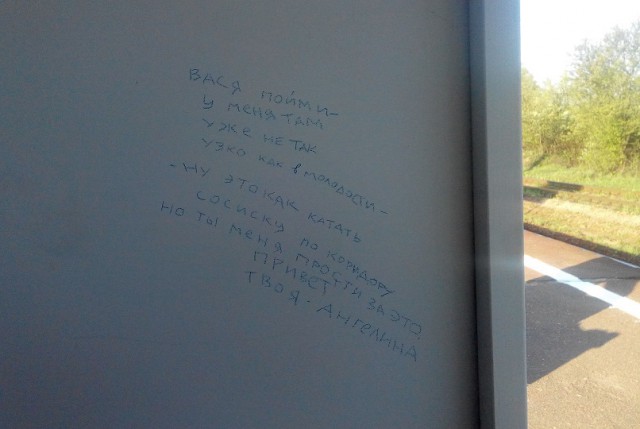 ВАСЯ ПОЙМИ-
У МЕНЯ ТАМ
УЖЕ НЕ ТАК
УЗКО КАК В МОЛОДОСТИ-
-НУ ЭТО КАК КАТАТЬ
СОСИСКУ ПО КОРИДОРУ
НО ТЫ МЕНЯ ПРОСТИ ЗА ЭТО.
ПРИВЕТ
ТВОЯ-АНГЕЛИНА